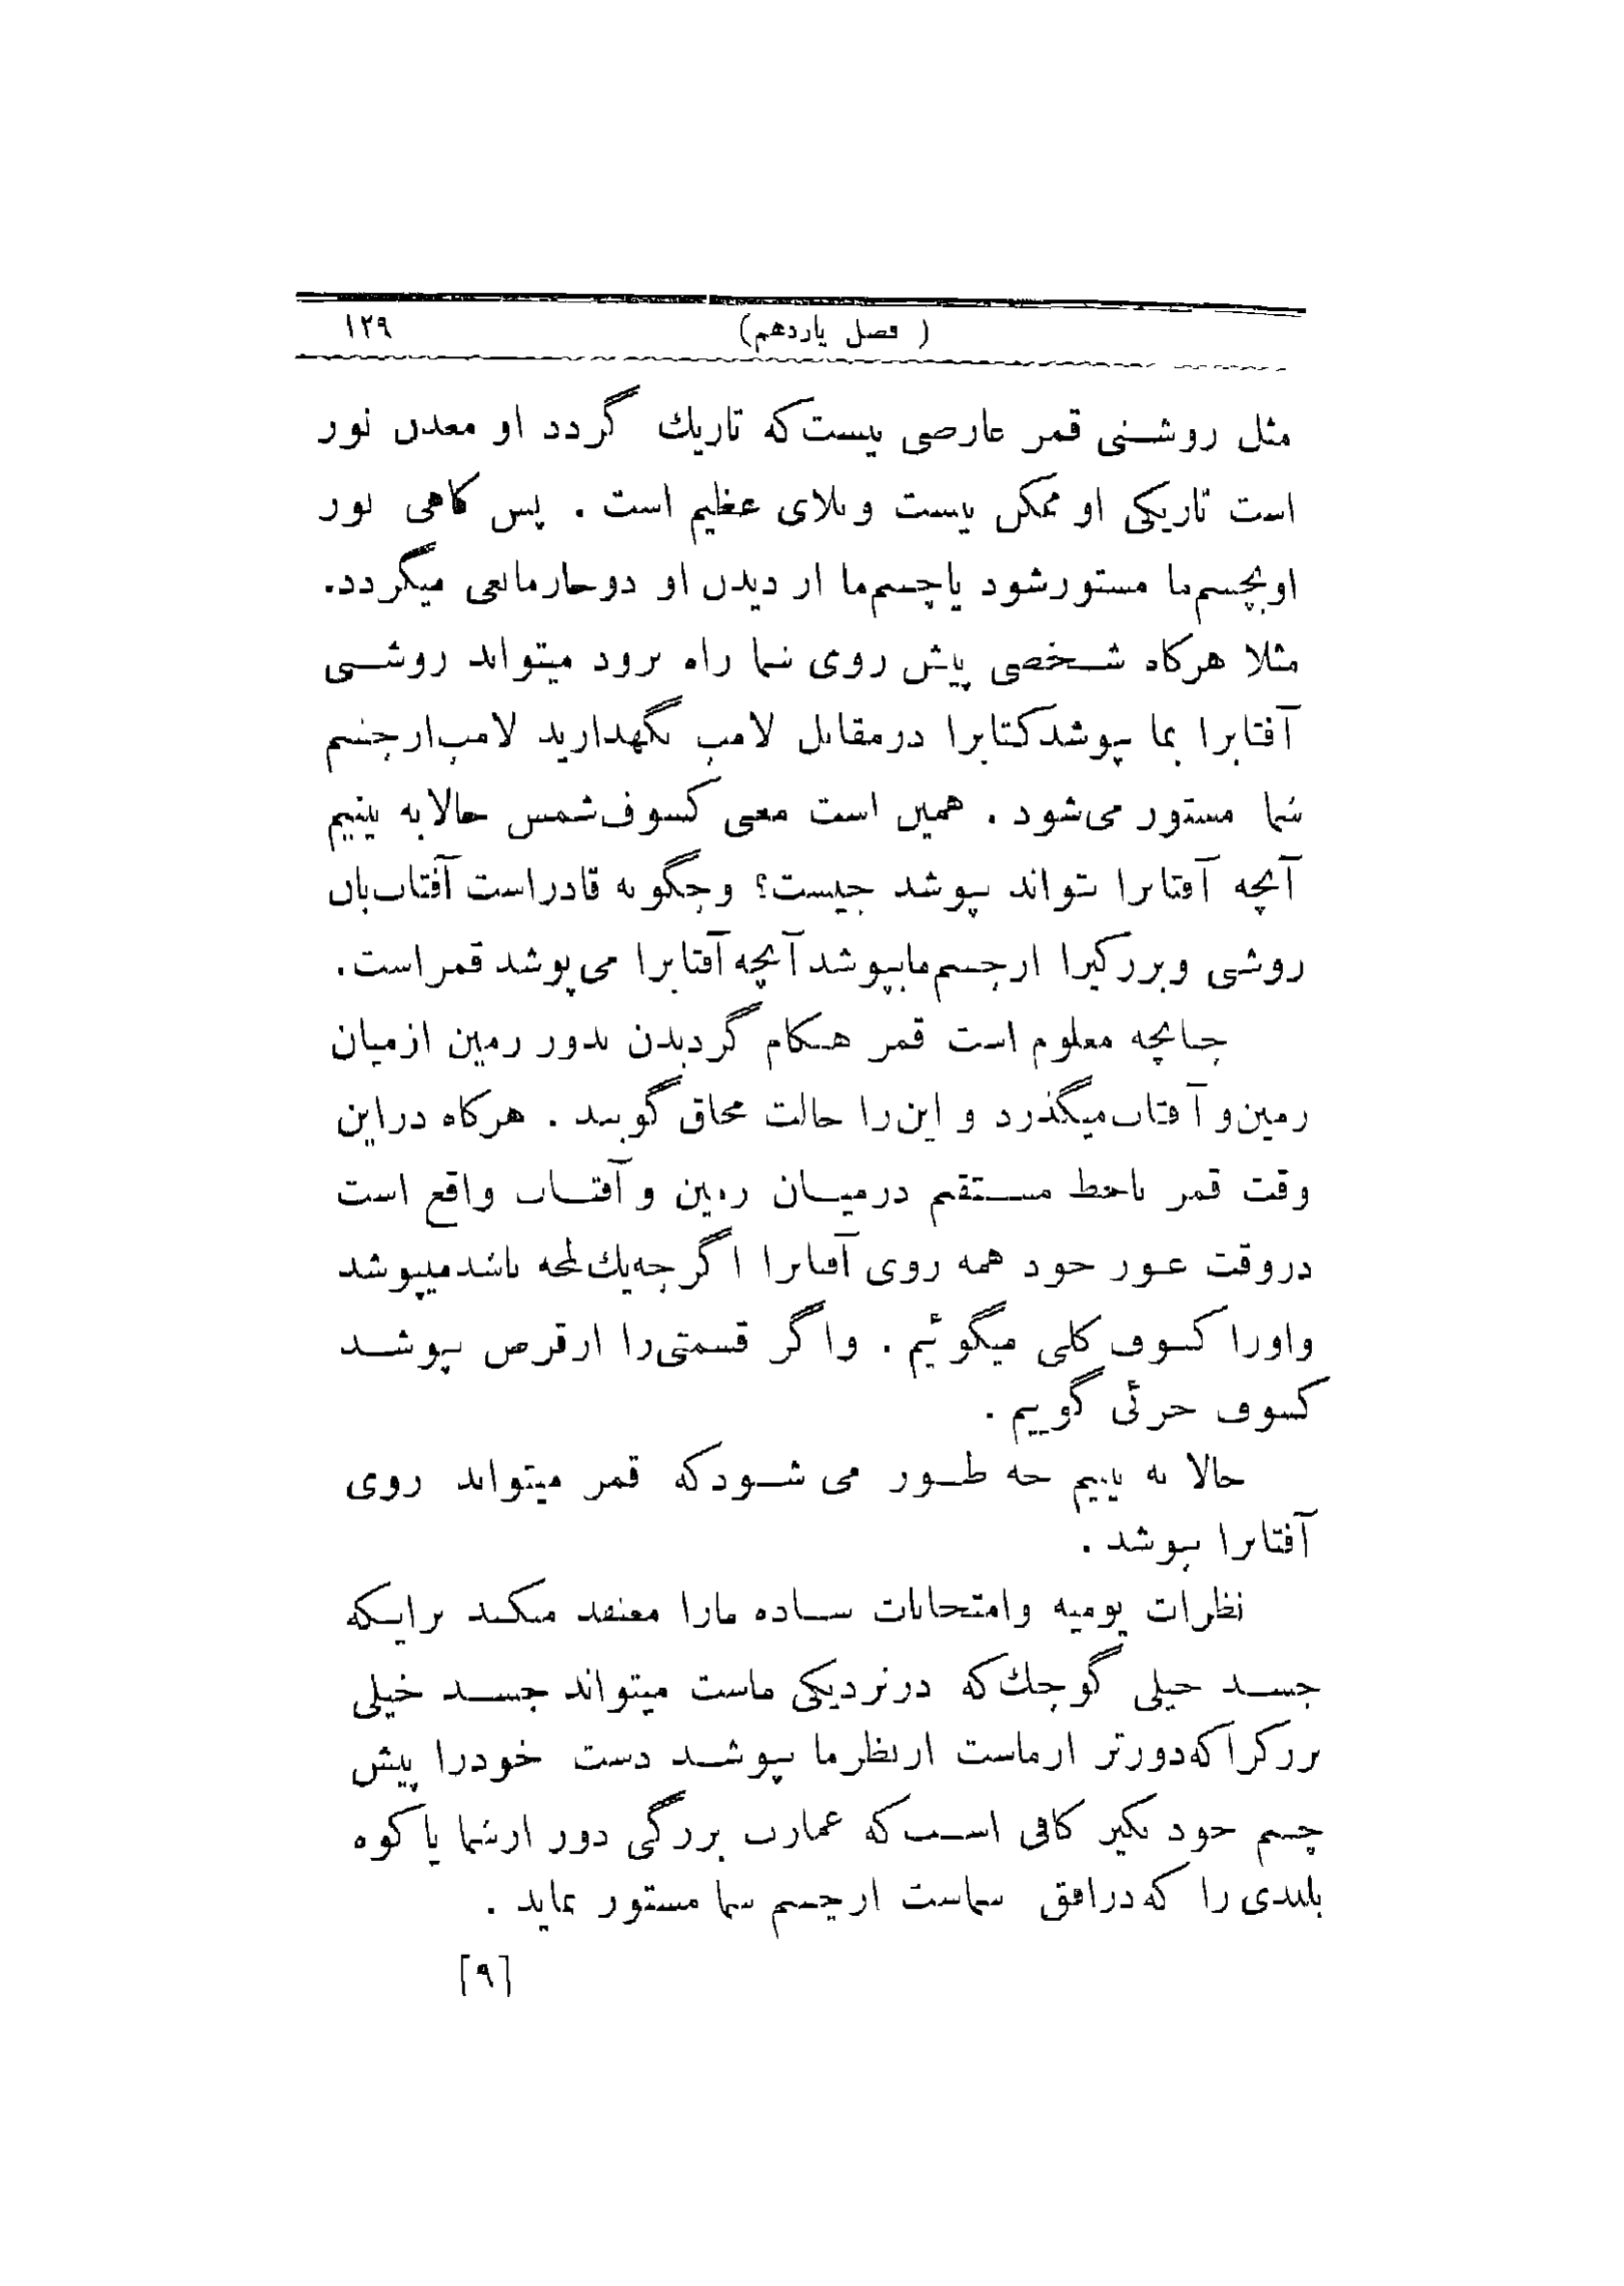 ( فصل یازدهم)
۱۲۹
مثل روشنی قمر عارضی نیست که تاریك گردد او معدن نور
است تاریکی او ممکن نیست و بلای عظیم است . پس کاهی نور
او بچسم ما مستور شود یا چسم ما از دیدن او دوچار مانعی میگردد.
مثلا هرکاه شخصی پیش روی شما راه برود میتواند روشنی
آفتابرا بما بپوشد کتابرا در مقابل لامپ نگهدارید لامپ از چشم
شما مستور می شود . همین است معنی کسوف شمس حالا به بینیم
آنچه آفتابرا بتواند بپوشد چیست؟ و چگونه قادر است آفتاب بان
روشنی و بزرکیرا از چسم ما بپوشد آنچه آفتابرا می پوشد قمر است.
چنانچه معلوم است قمر هنکام گردیدن بدور زمین از میان
زمین و آفتاب میگذرد و این را حالت محاق گویند . هرکاه در این
وقت قمر با خط مستقیم در میان زمین و آفتاب واقع است
در وقت عبور خود همه روی آفتابرا اگر چه یك لمحه باشد میپوشد
و اورا کسوف کلی میگوئیم . و اگر قسمتی را از قرص بپوشد
کسوف جزئی گوییم .
حالا به بینیم چه طور می شود که قمر میتواند روی
آفتابرا بپوشد .
نظرات یومیه و امتحانات ساده مارا معتقد میکند براینکه
جسد خیلی گوچك که در نزدیکی ماست میتواند جسد خیلی
بزرکرا که دورتر از ماست از نظر ما بپوشد دست خودرا پیش
چسم خود بگیر کافی است که عمارت بزرگی دور از شما یا کوه
بلندی را که در افق شماست از چسم شما مستور نماید .
[۹]